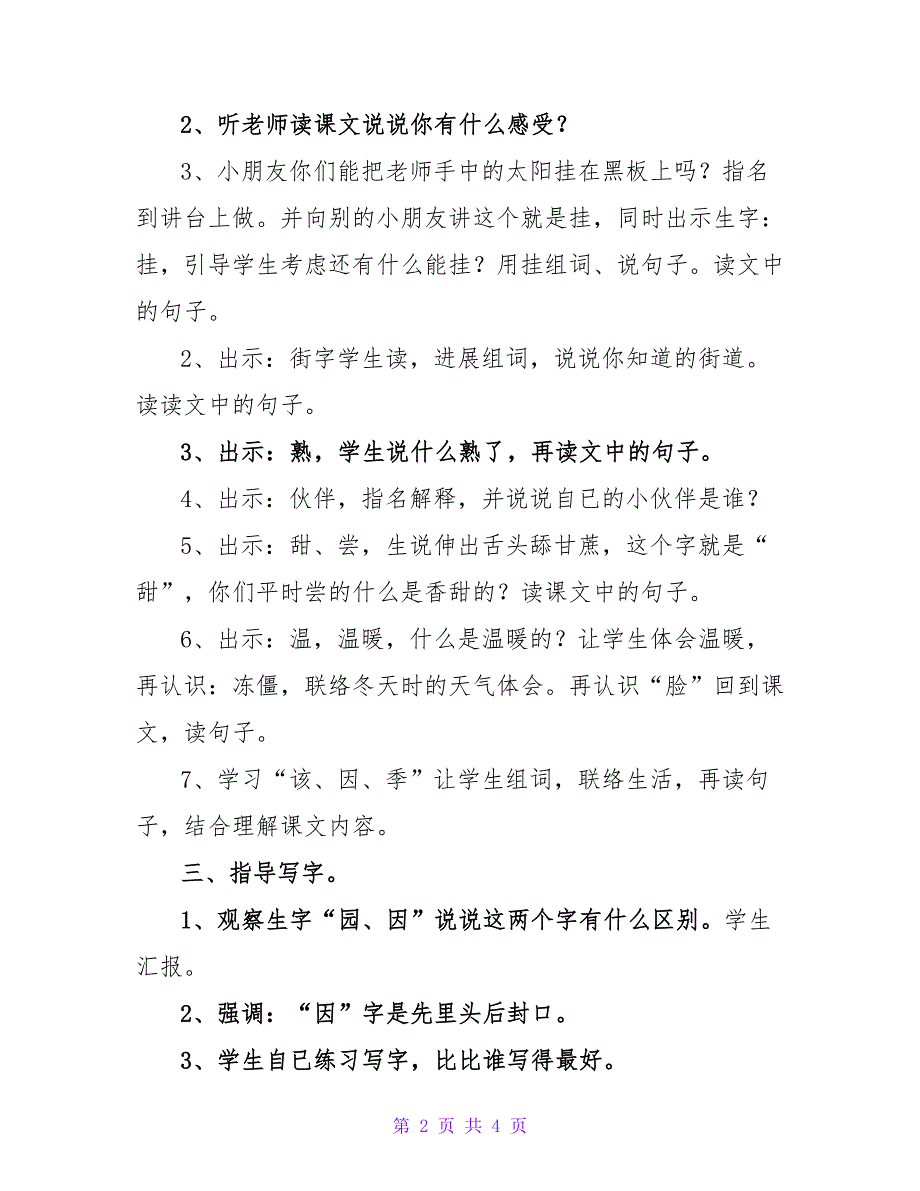 2、听老师读课文说说你有什么感受？
3、小朋友你们能把老师手中的太阳挂在黑板上吗？指名
到讲台上做。并向别的小朋友讲这个就是挂，同时出示生字：
挂，引导学生考虑还有什么能挂？用挂组词、说句子。读文中
的句子。
2、出示：街字学生读，进展组词，说说你知道的街道。
读读文中的句子。
3、出示：熟，学生说什么熟了，再读文中的句子。
4、出示：伙伴，指名解释，并说说自己的小伙伴是谁？
5、出示：甜、尝，生说伸出舌头舔甘蔗，这个字就是“
甜”，你们平时尝的什么是香甜的？读课文中的句子。
6、出示：温，温暖，什么是温暖的？让学生体会温暖，
再认识：冻僵，联络冬天时的天气体会。再认识“脸”回到课
文，读句子。
7、学习“该、因、季”让学生组词，联络生活，再读句
子，结合理解课文内容。
三、指导写字。
1、观察生字“园、因”说说这两个字有什么区别。学生
汇报。
2、强调：“因”字是先里头后封口。
3、学生自已练习写字，比比谁写得最好。
第 2 页 共 4 页